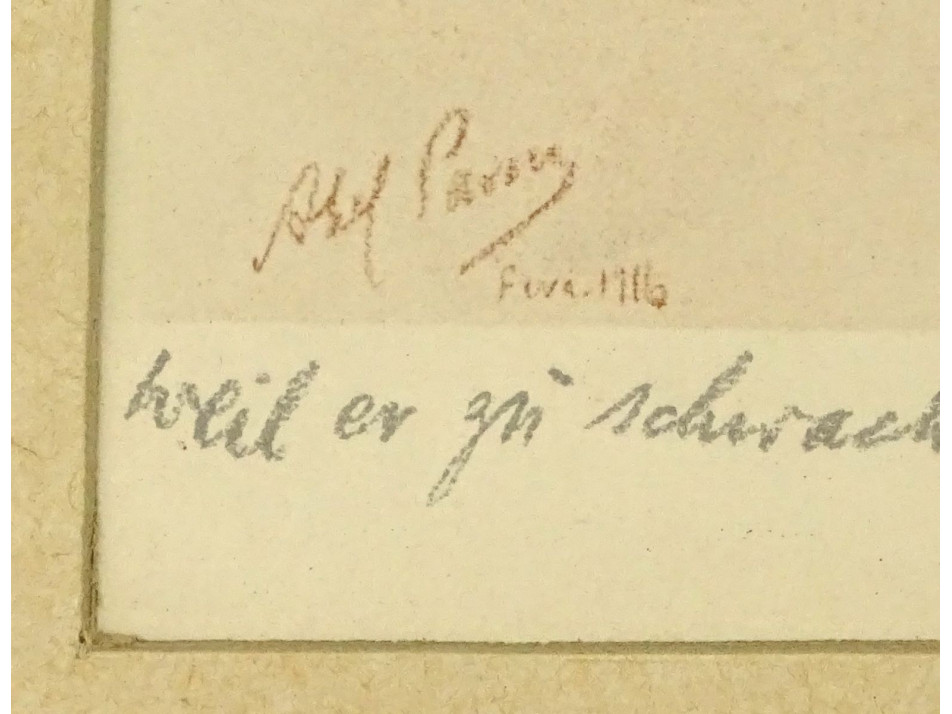 Abel Pann
1916
weil er zu schwach